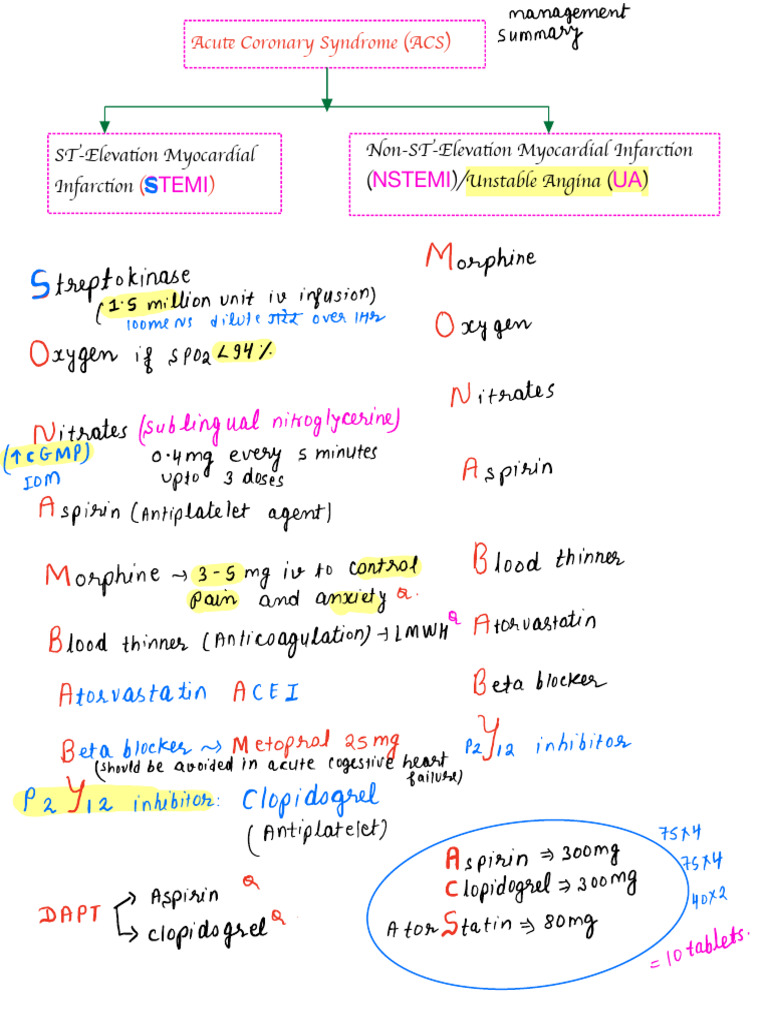 management
summary
Acute Coronary Syndrome (ACS)
ST-Elevation Myocardial
Infarction (STEMI)
Non-ST-Elevation Myocardial Infarction
(NSTEMI)/Unstable Angina (UA)
Streptokinase
(1.5 million unit iv infusion)
100ml NS dilute करके over 1Hr
Oxygen if SPO2 <94%
Nitrates (sublingual nitroglycerine)
(↑cGMP) 0.4mg every 5 minutes
IOM upto 3 doses
Aspirin (Antiplatelet agent)
Morphine → 3-5 mg iv to control
pain and anxiety Q.
Blood thinner (Anticoagulation) → LMWH Q
Atorvastatin ACEI
Beta blocker ⇝ Metoprol 25mg
(should be avoided in acute cogestive heart
failure)
P2Y12 inhibitor: Clopidogrel
(Antiplatelet)
DAPT → Aspirin Q
→ clopidogrel Q
Morphine
Oxygen
Nitrates
Aspirin
Blood thinner
Atorvastatin
Beta blocker
P2Y12 inhibitor
Aspirin ⇒ 300mg 75x4
Clopidogrel ⇒ 300mg 75x4
Ator Statin ⇒ 80mg 40x2
= 10 tablets.